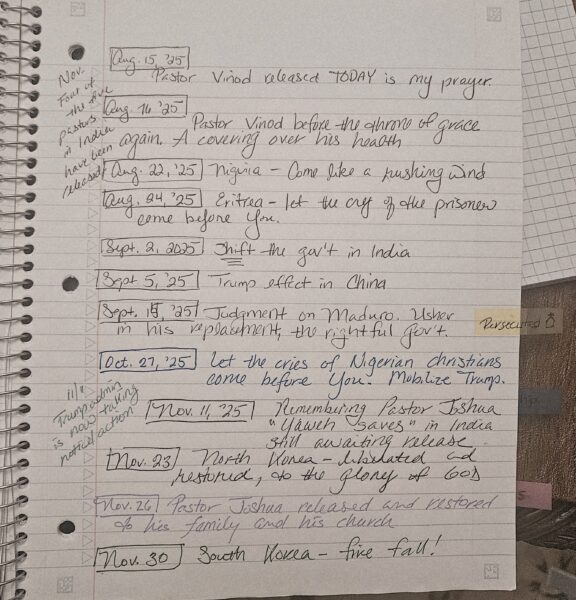 Aug. 15, '25
Pastor Vinod released TODAY is my prayer.
Nov.
Four of
the five
pastors
in India
have been
released!
Aug. 16 '25
Pastor Vinod before the throne of grace
again. A covering over his health
Aug. 22, '25 Nigeria - Come like a rushing wind
Aug. 24, '25 Eritrea - let the cry of the prisoner
come before You.
Sept. 2, 2025 Shift the gov't in India
Sept 5, '25 Trump effect in China
Sept. 15, '25 Judgment on Maduro. Usher
in his replacement, the rightful Gov't.
Persecuted
Oct. 27, '25 Let the cries of Nigerian christians
come before You. Mobilize Trump.
11/8
Trump admin
is now taking
action
Nov. 11, '25 Remembering Pastor Joshua
"Yaweh saves" in India
still awaiting release
Nov. 23 North Korea - liberated and
restored, to the glory of GOD
Nov. 26 Pastor Joshua released and restored
to his family and his church
Nov. 30 South Korea - fire fall!